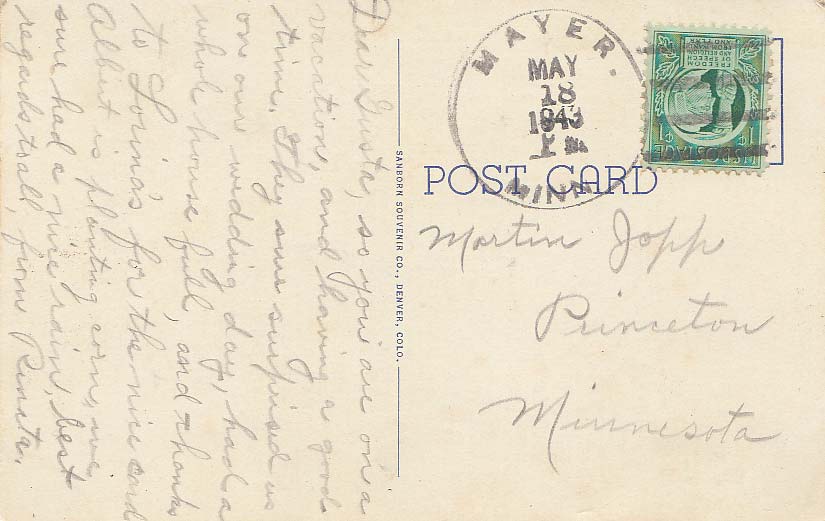 Dear Gusta, so you are on a
vacation, and having a good
time. They sure surprised us
on our wedding day, had a
whole house full, and thanks
to Lorinas for the nice card
Albert is planting corn, we
sure had a nice rain, best
regards to all, from Renata.
SANBORN SOUVENIR CO., DENVER, COLO.
MAYER.
MAY
18
1943
MINN
POST CARD
FREEDOM
OF SPEECH
AND RELIGION
FROM WANT
AND FEAR
U.S. POSTAGE
1¢
Martin Jopp
Princeton
Minnesota